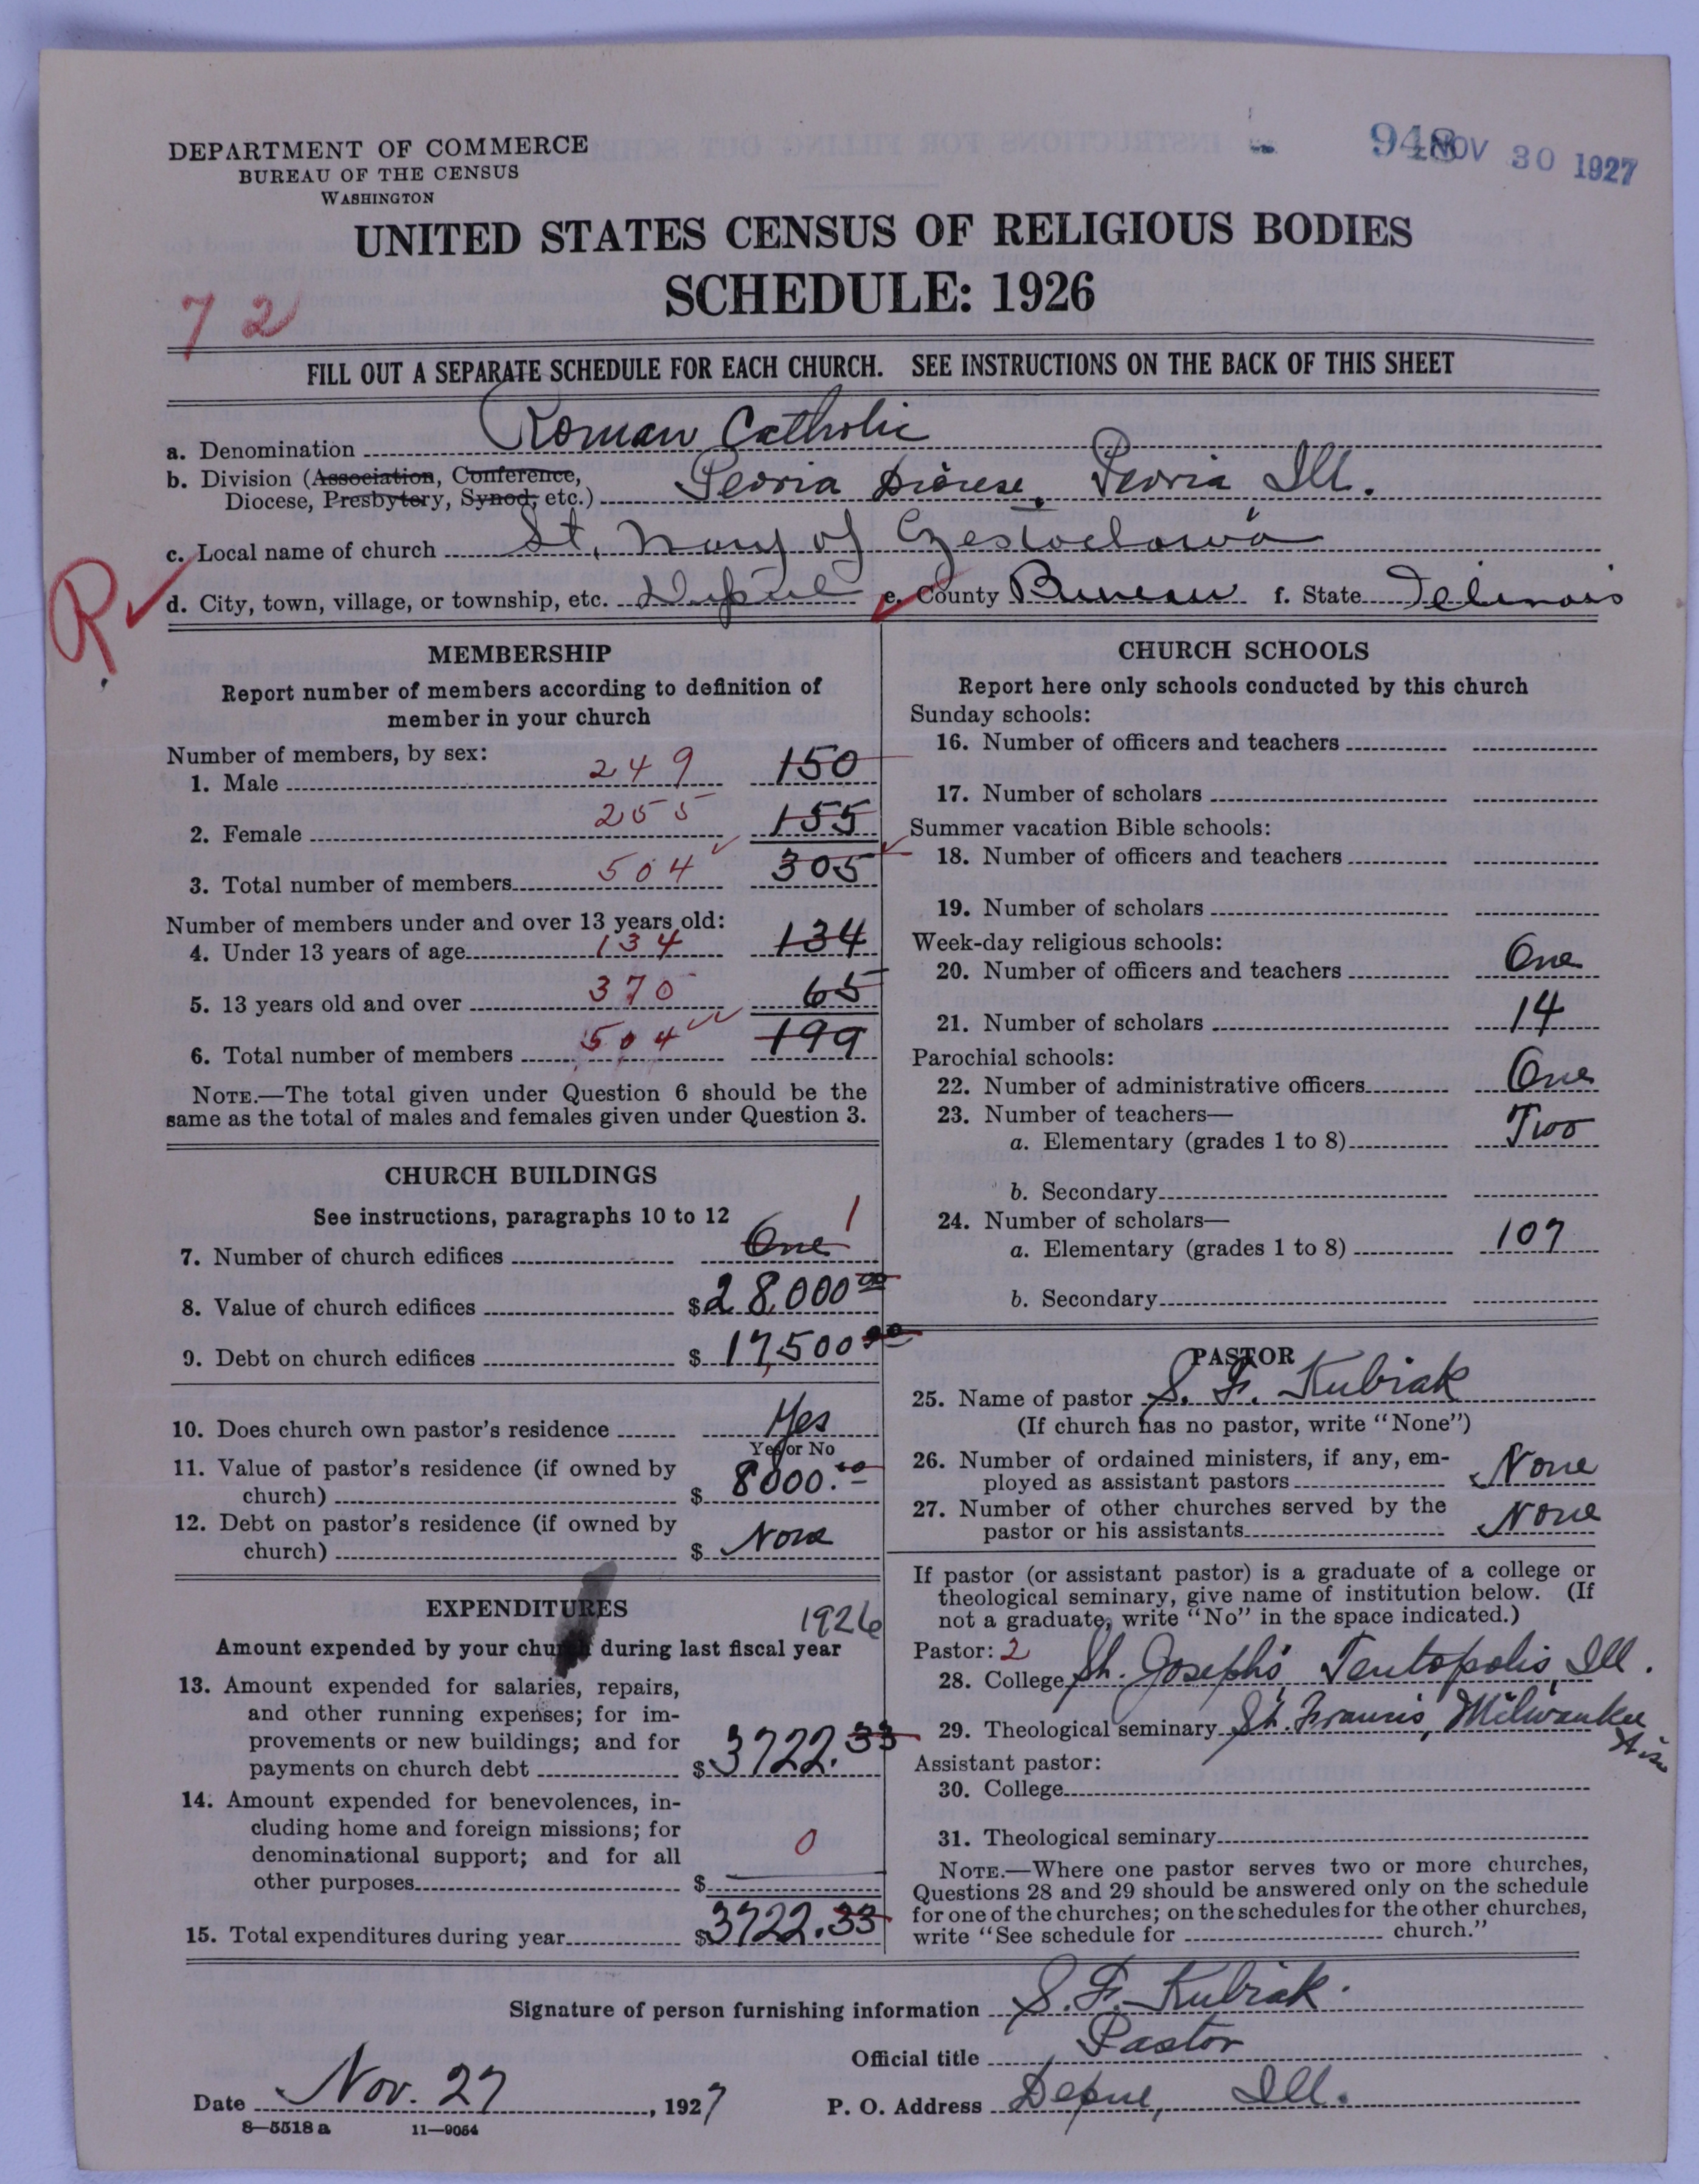 DEPARTMENT OF COMMERCE
BUREAU OF THE CENSUS
WASHINGTON
948 NOV 30 1927
UNITED STATES CENSUS OF RELIGIOUS BODIES
SCHEDULE: 1926
72
FILL OUT A SEPARATE SCHEDULE FOR EACH CHURCH. SEE INSTRUCTIONS ON THE BACK OF THIS SHEET
a. Denomination Roman Catholic
b. Division (Association, Conference,
Diocese, Presbytery, Synod, etc.) Peoria Diocese, Peoria Ill.
c. Local name of church St. Mary of Czestochowa
R
d. City, town, village, or township, etc. Depue e. County Bureau f. State Illinois
MEMBERSHIP
Report number of members according to definition of
member in your church
Number of members, by sex:
1. Male 249 150
2. Female 255 155
3. Total number of members 504 305
Number of members under and over 13 years old:
4. Under 13 years of age 134 134
5. 13 years old and over 370 65
6. Total number of members 504 199
NOTE.—The total given under Question 6 should be the
same as the total of males and females given under Question 3.
CHURCH BUILDINGS
See instructions, paragraphs 10 to 12
7. Number of church edifices One 1
8. Value of church edifices $28,000 00
9. Debt on church edifices $17,500 00
10. Does church own pastor's residence Yes
Yes or No
11. Value of pastor's residence (if owned by
church) $8000.00
12. Debt on pastor's residence (if owned by
church) $None
EXPENDITURES
1926
Amount expended by your church during last fiscal year
13. Amount expended for salaries, repairs,
and other running expenses; for im-
provements or new buildings; and for
payments on church debt $3722.33
14. Amount expended for benevolences, in-
cluding home and foreign missions; for
denominational support; and for all
other purposes $ 0
15. Total expenditures during year $3722.33
CHURCH SCHOOLS
Report here only schools conducted by this church
Sunday schools:
16. Number of officers and teachers
17. Number of scholars
Summer vacation Bible schools:
18. Number of officers and teachers
19. Number of scholars
Week-day religious schools:
20. Number of officers and teachers One
21. Number of scholars 14
Parochial schools:
22. Number of administrative officers One
23. Number of teachers—
a. Elementary (grades 1 to 8) Two
b. Secondary
24. Number of scholars—
a. Elementary (grades 1 to 8) 107
b. Secondary
PASTOR
25. Name of pastor S. F. Kubiak
(If church has no pastor, write "None")
26. Number of ordained ministers, if any, em-
ployed as assistant pastors None
27. Number of other churches served by the
pastor or his assistants None
If pastor (or assistant pastor) is a graduate of a college or
theological seminary, give name of institution below. (If
not a graduate, write "No" in the space indicated.)
Pastor: 2
28. College St. Joseph's, Teutopolis, Ill.
29. Theological seminary St. Francis, Milwaukee
Wis
Assistant pastor:
30. College
31. Theological seminary
NOTE.—Where one pastor serves two or more churches,
Questions 28 and 29 should be answered only on the schedule
for one of the churches; on the schedules for the other churches,
write "See schedule for church."
Signature of person furnishing information S. F. Kubiak.
Official title Pastor
Date Nov. 27, 1927 P. O. Address Depue, Ill.
8—5518 a 11—9054